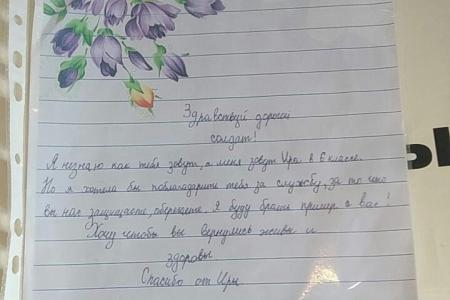 Здравствуй дорогой
солдат!
Я незнаю как тебя зовут, а меня зовут Ира в 6 классе.
Но я хотела бы поблагодарить тебя за службу, за то что
вы нас защищаете, оберегаете. Я буду брать пример с вас!
Хочу чтобы вы вернулись живы и
здоровы
Спасибо от Иры
Ы